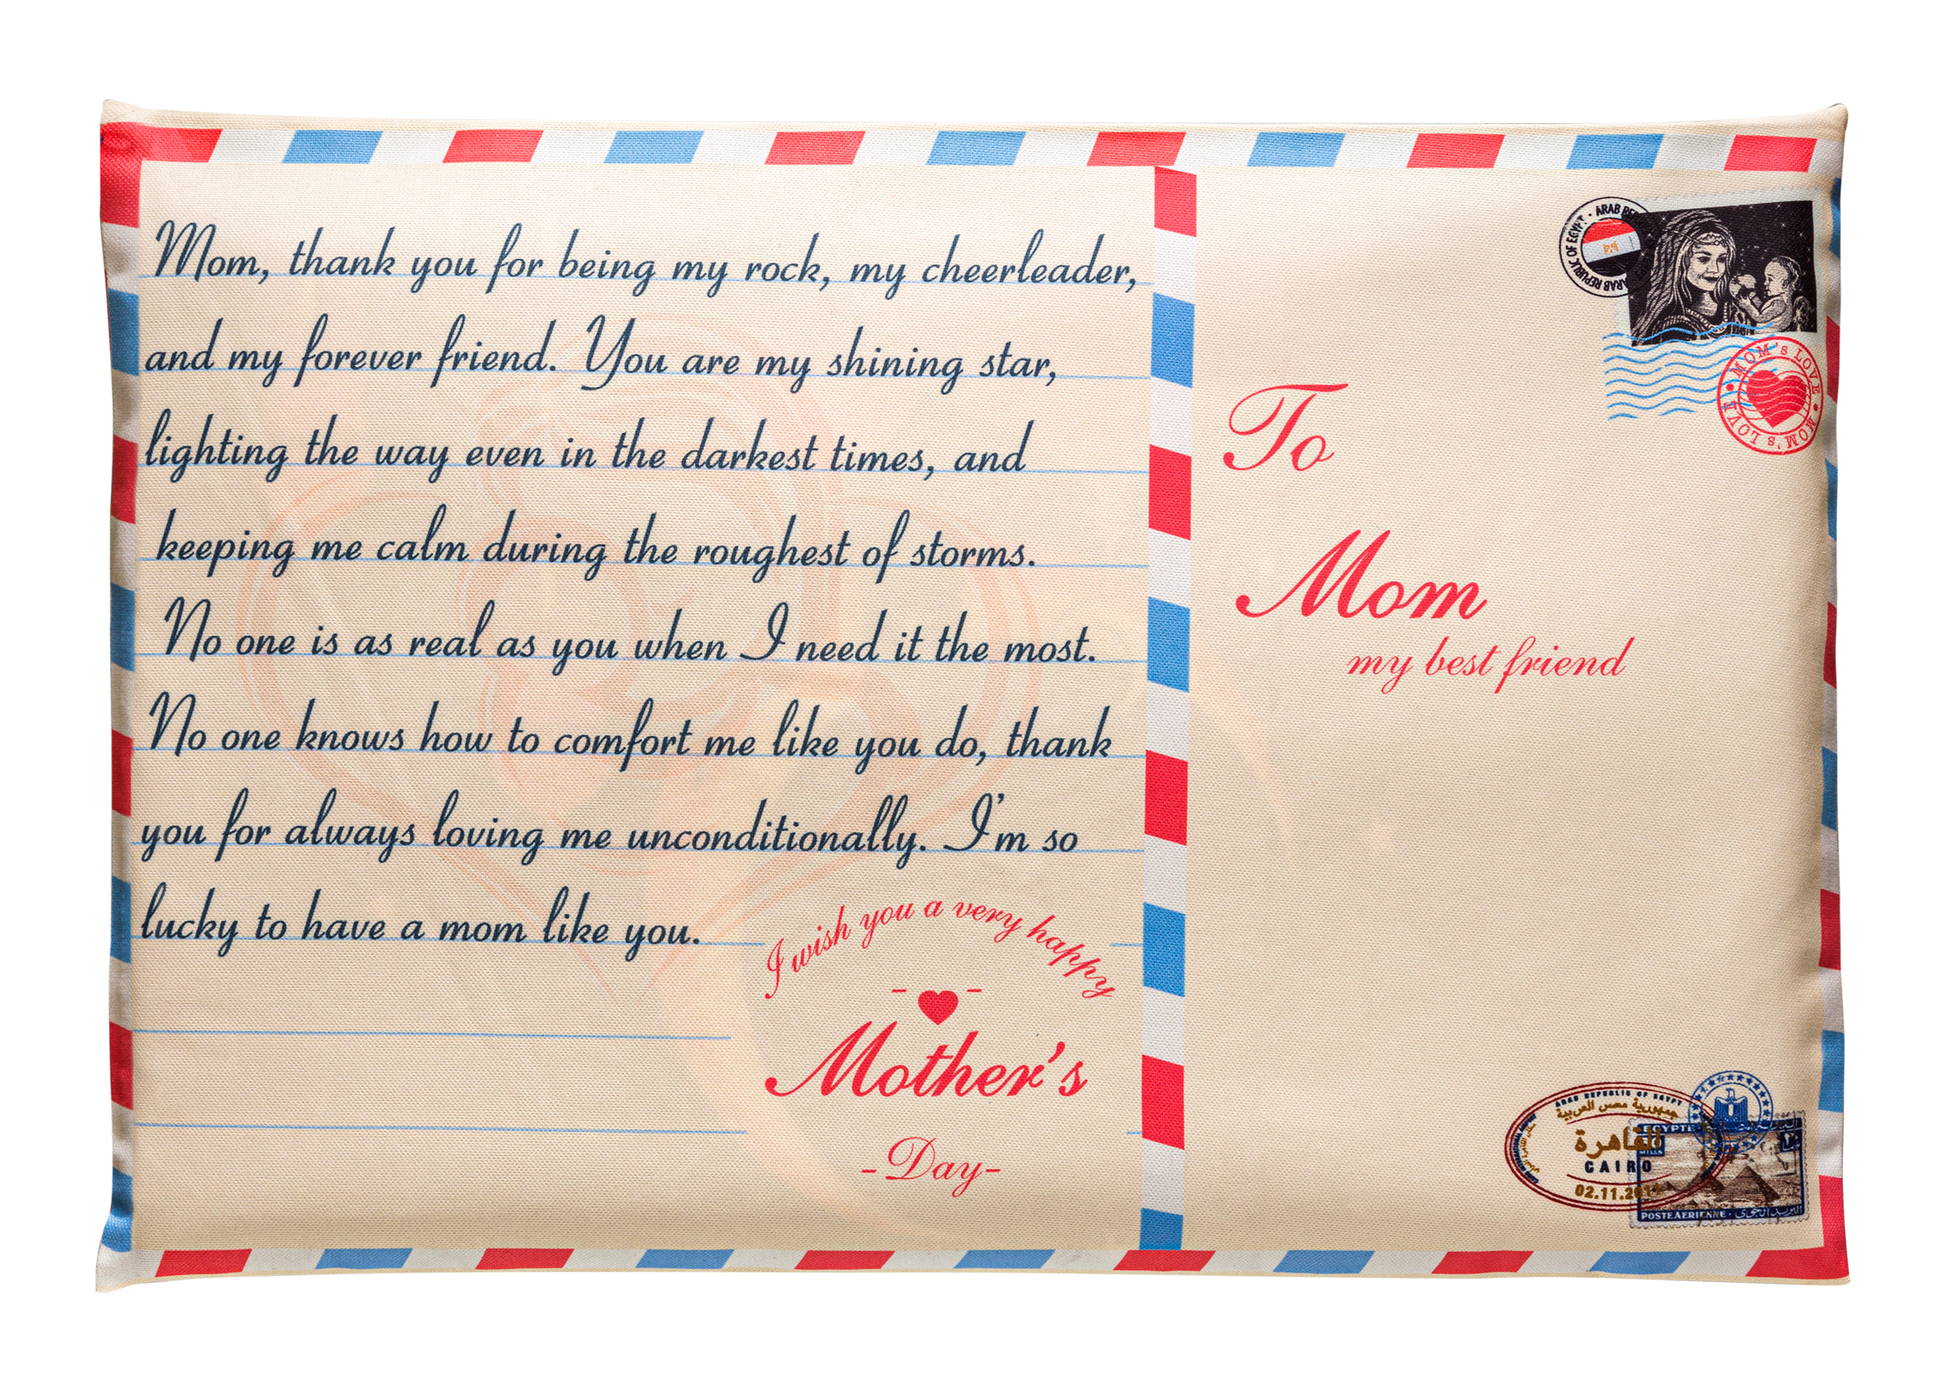 Mom, thank you for being my rock, my cheerleader,
and my forever friend. You are my shining star,
lighting the way even in the darkest times, and
keeping me calm during the roughest of storms.
No one is as real as you when I need it the most.
No one knows how to comfort me like you do, thank
you for always loving me unconditionally. I'm so
lucky to have a mom like you.
I wish you a very happy
Mother's
-Day-
ARAB REPUBLIC OF EGYPT
MOM's LOVE • MOM's LOVE
To
Mom
my best friend
ARAB REPUBLIC OF EGYPT
جمهورية مصر العربية
القاهرة
CAIRO
02.11.201
EGYPTE
MILLS
POSTE AERIENNE - البريد الجوى